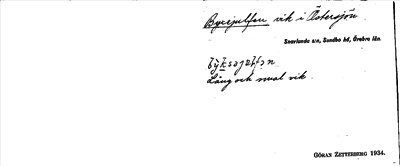 Byxsjulfen vik i Östersjön
Snavlunda s:n, Sundbo hd, Örebro län.
Lång och smal vik.
GÖRAN ZETTERBERG 1934.